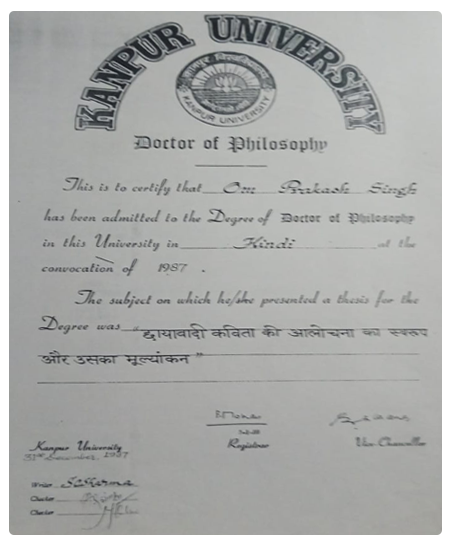 KANPUR UNIVERSITY
KANPUR UNIVERSITY
Doctor of Philosophy
This is to certify that Om Prakash Singh
has been admitted to the Degree of Doctor of Philosophy
in this University in Hindi at the
convocation of 1987 .
The subject on which he/she presented a thesis for the
Degree was "छायावादी कविता की आलोचना का स्वरूप
और उसका मूल्यांकन"
Registrar
Vice-Chancellor
Kanpur University
1987
Writer S.Sharma
Checker
Checker